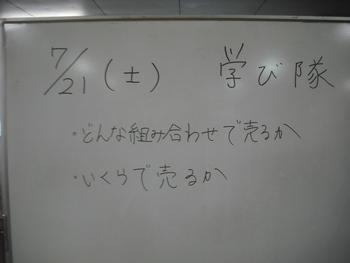 7/21(土) 学び隊
・どんな組み合わせで売るか
・いくらで売るか